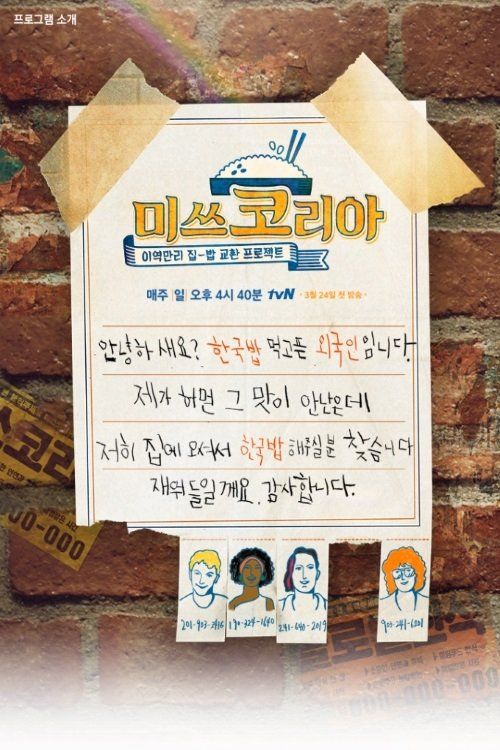 프로그램 소개
미쓰코리아
이역만리 집-밥 교환 프로젝트
매주 일 오후 4시 40분 tvN · 3월 24일 첫 방송 ·
안녕하 새요? 한국밥 먹고픈 외국인입니다.
제가 하면 그 맛이 안난은데
저희 집에 오셔서 한국밥 해주실분 찾습니다
재워 들일게요. 감사합니다.
쓰코리
00-000
201-903-2416
180-324-1640
241-640-2019
903-241-6201
000-000-000